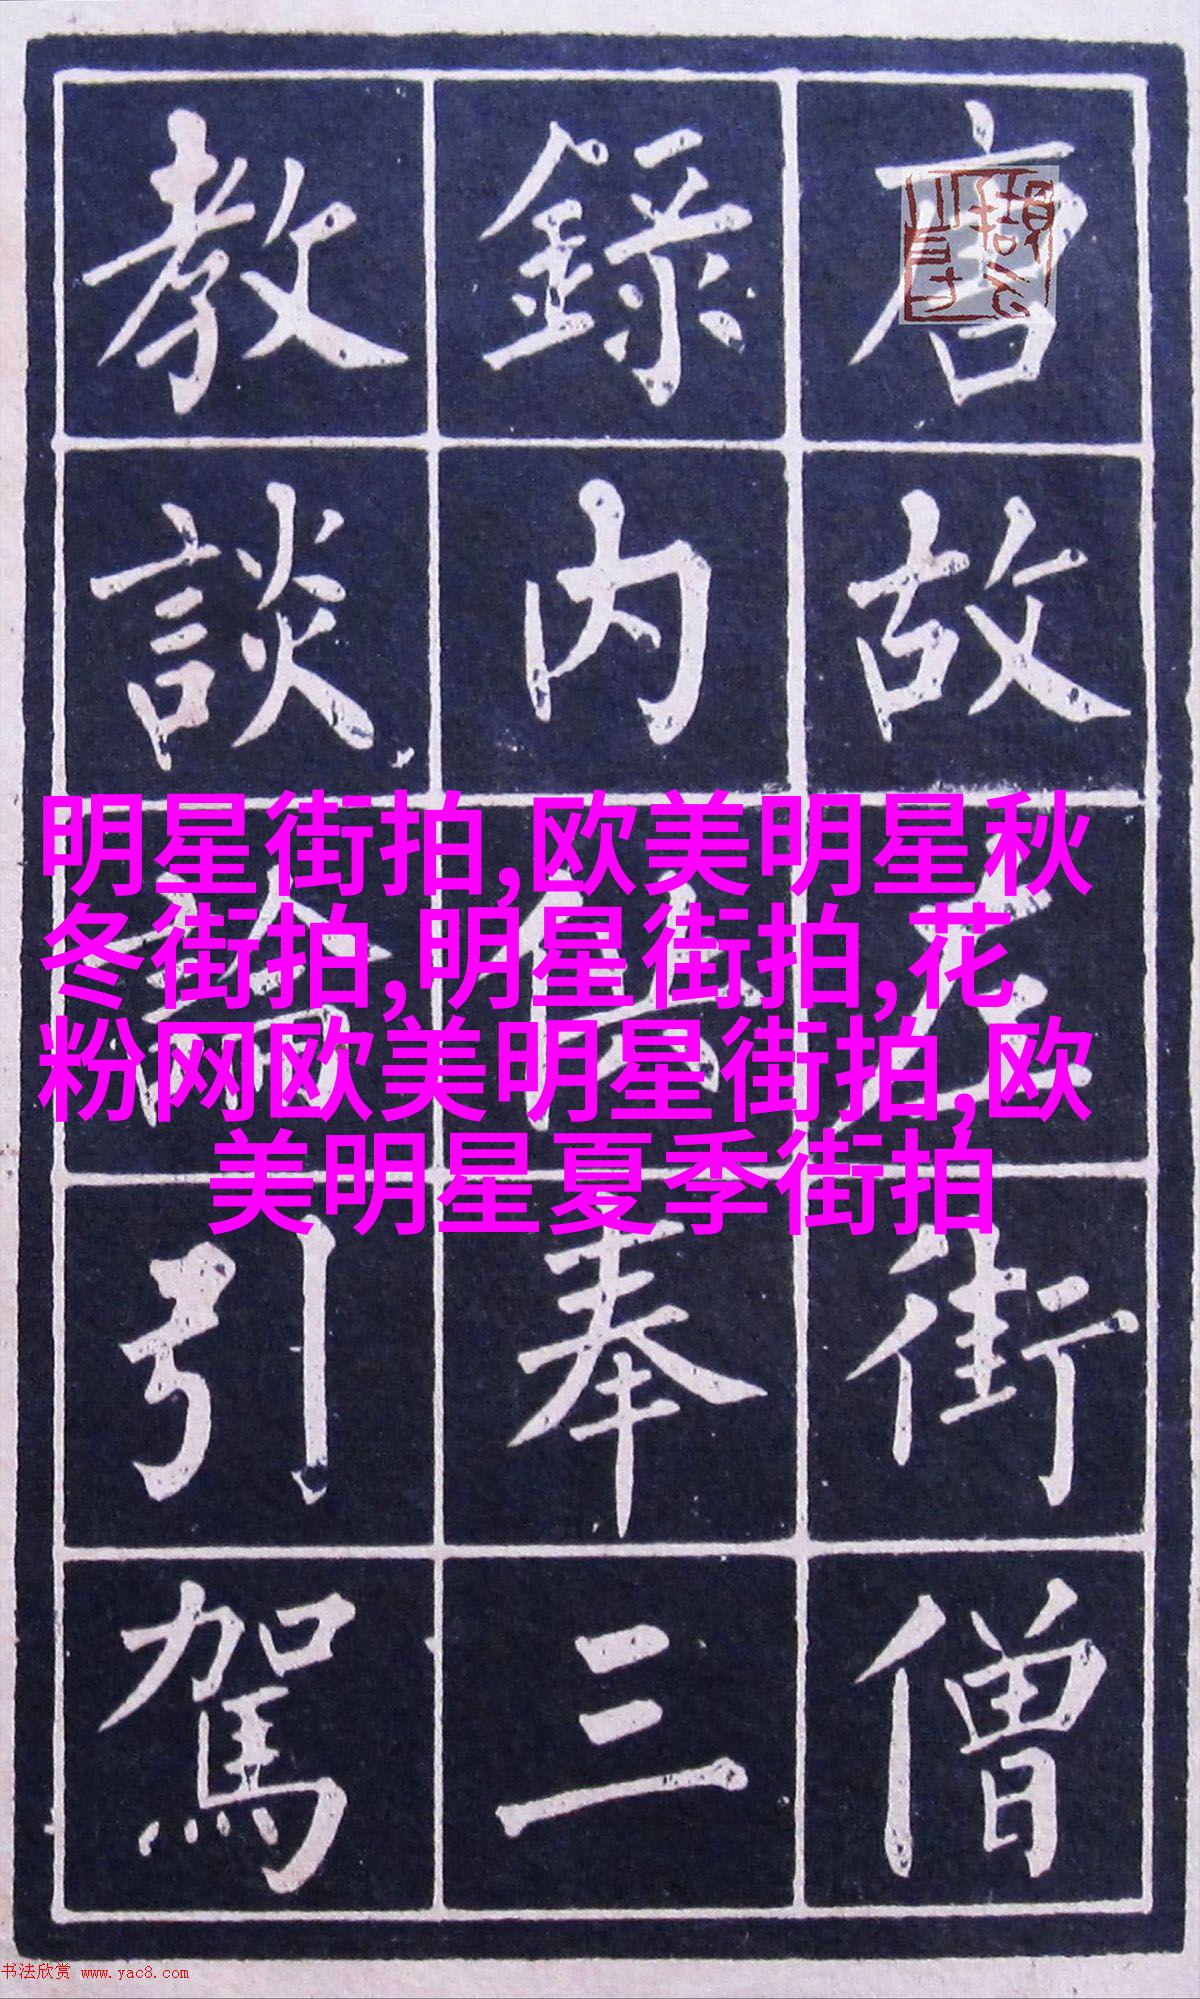 唐故左街僧
錄内供奉三
教談論引駕
明星街拍,欧美明星秋
冬街拍,明星街拍,花
粉网欧美明星街拍,欧
美明星夏季街拍
书法欣赏 www.yac8.com